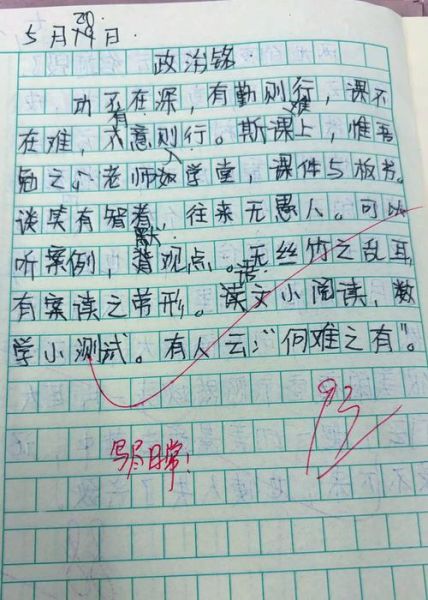 5月20日.
政治铭.
功不在深，有勤则行，课不
在难，有意则行。斯课上，惟吾
勉之。老师入学堂，课件与板书。
谈笑有智者，往来无愚人。可以
听案例，默观点。无丝竹之乱耳，
有案读之劳形。语文小阅读，数
学小测试。有人云:“何难之有”。
写尽日常!
93